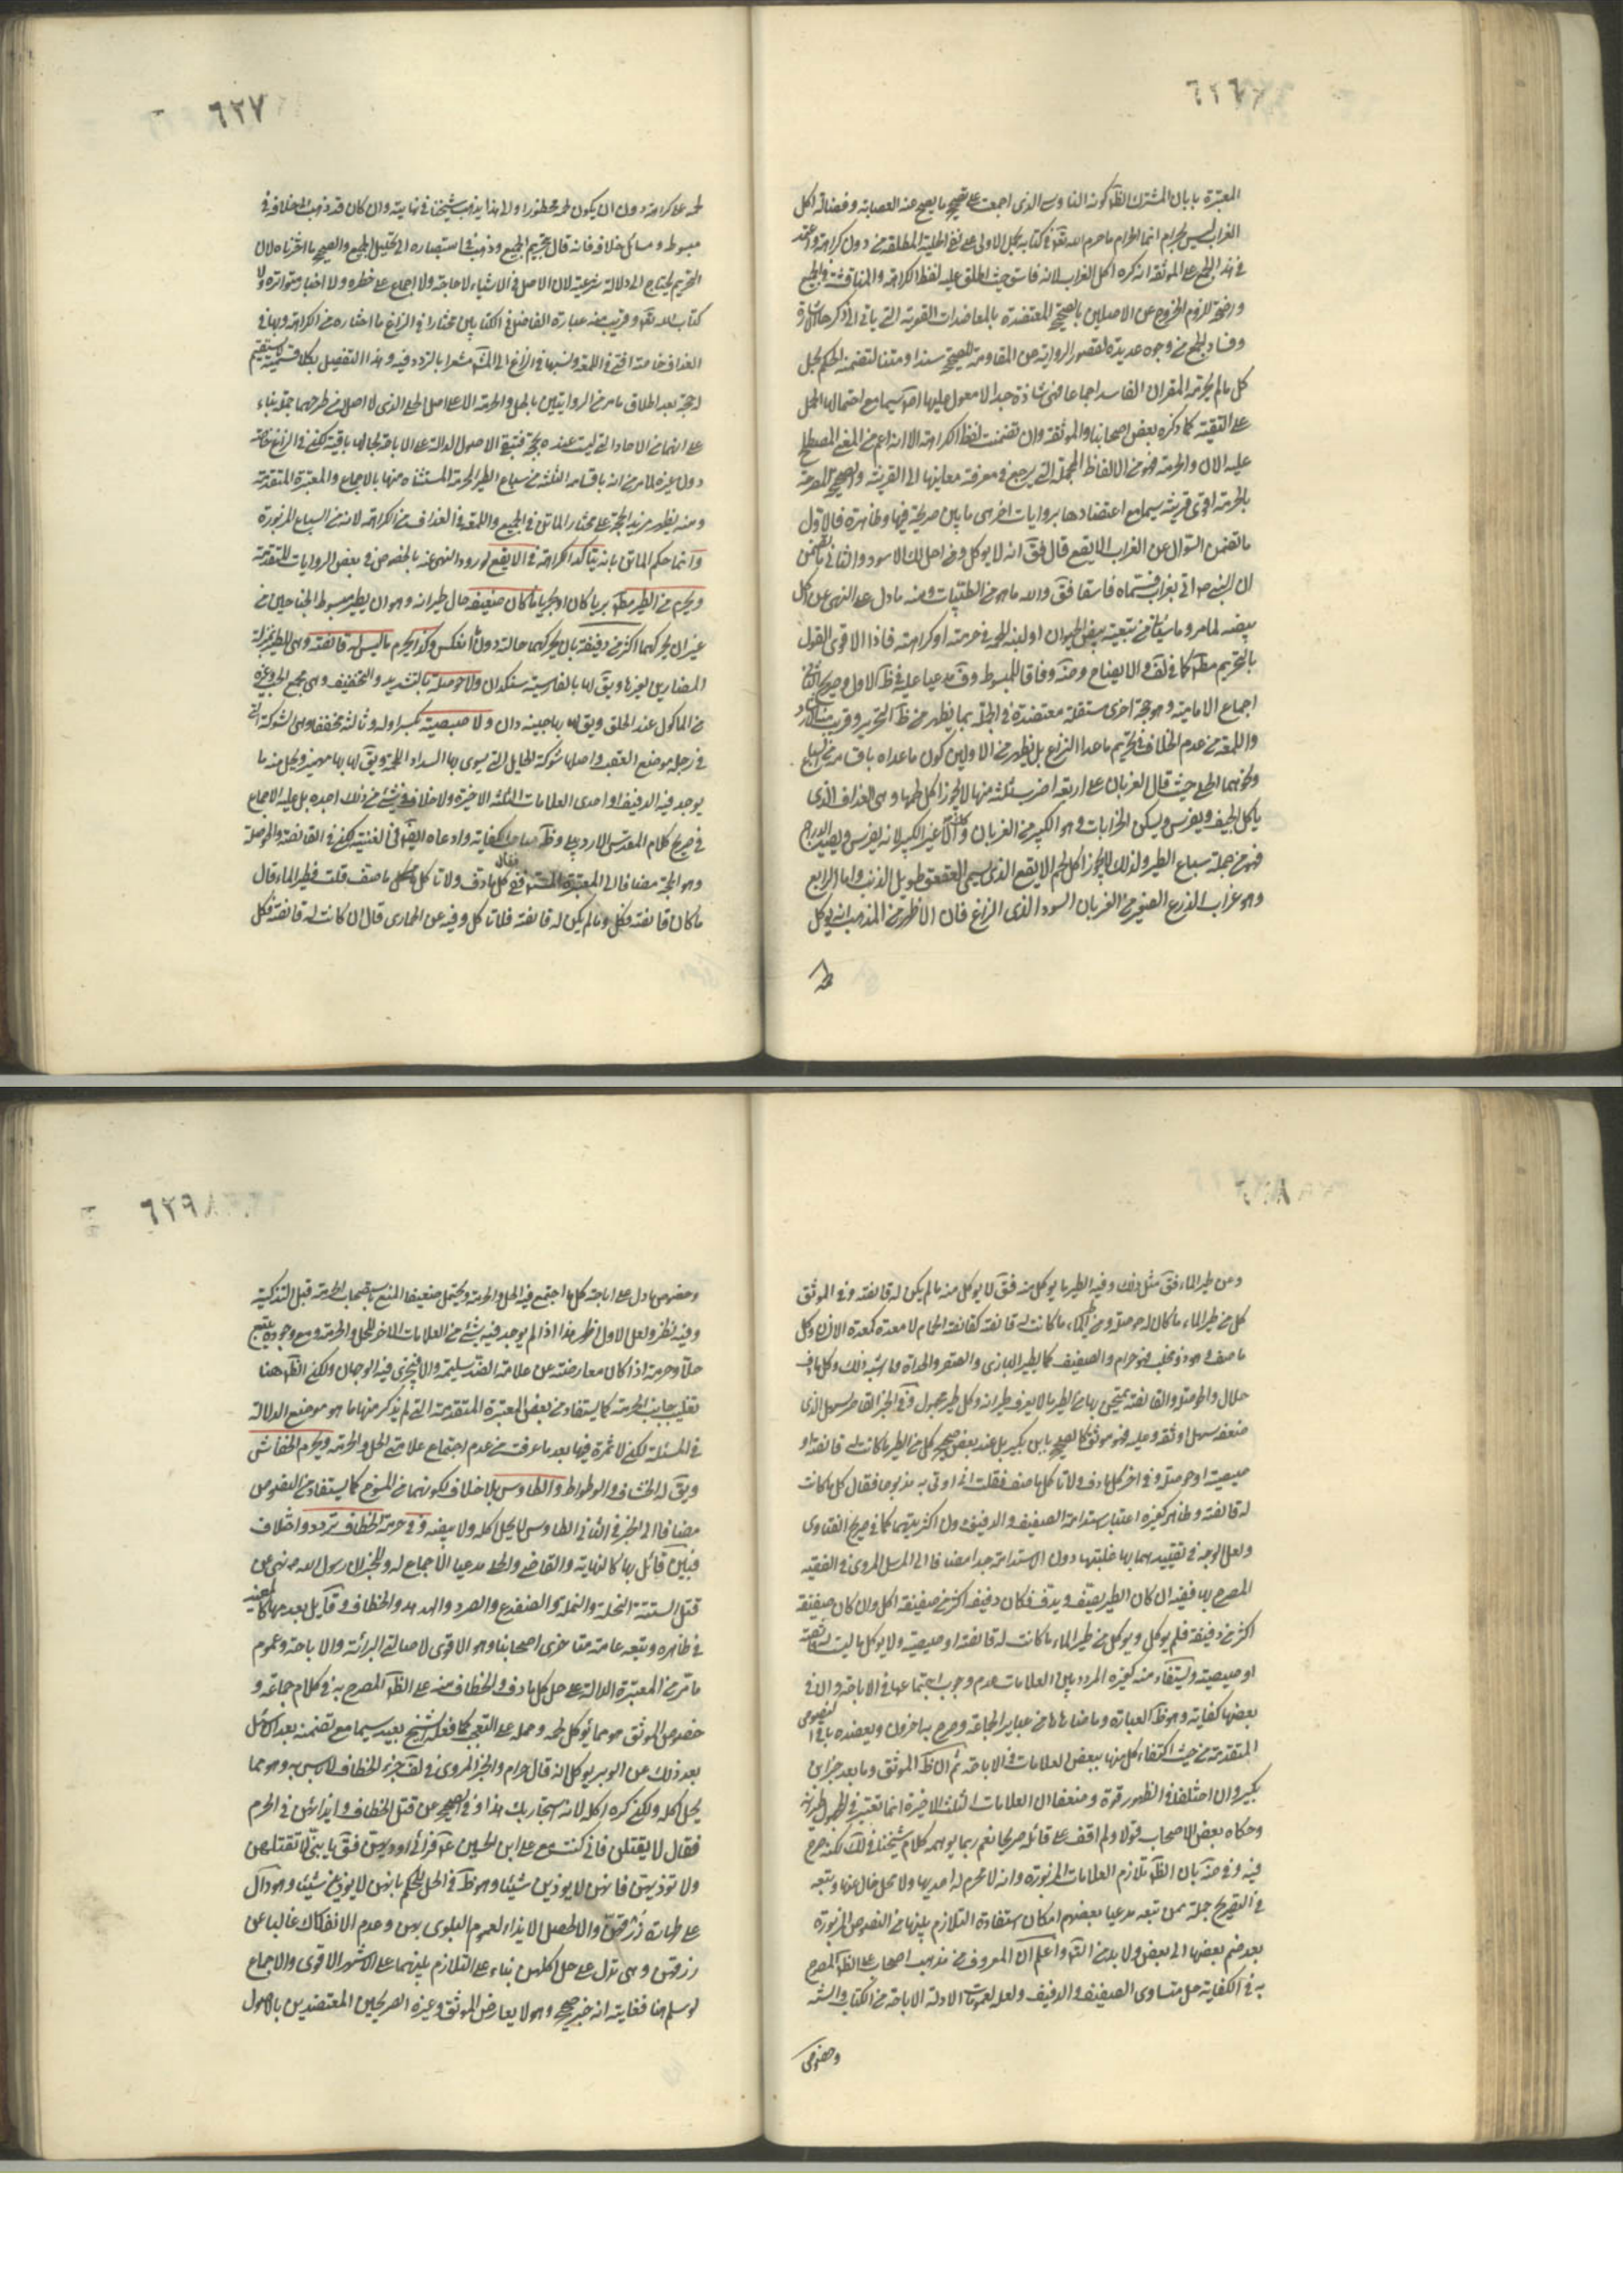 ٦٢٦
المعتبرة بابان المشترك الظ كونه الناووسي الذي اجمعت على تصحيح ما يصح عنه العصابة وفضالة اكل
الغراب ليس بحرام انما الحرام ما حرم الله تعه في كتابه بحمل الاولى على نفي الحلية المطلقة من دون كراهة
في هذا الجمع على الموثقة انه كره اكل الغراب لانه فاسق حيث اطلق عليه لفظ الكراهة والمناقشة في الجمع
واضحة للزوم الخروج عن الاصلين بالصحيح المعتضدة بالمعاضدات القوية التي ياتي الى ذكرها الاشارة
وفساد الجمع من وجوه عديدة لقصور الرواية عن المقاومة للصحيح سندا ومتنا لتضمنه الحكم بحل
كل ما لم يحرمه القران الفاسد اجماعا فهي شاذة جدا لا معول عليها سيما مع احتمالها الحمل
على التقية كما ذكره بعض اصحابنا والموثقة وان تضمنت لفظ الكراهة الا انه اعم من المعنى المصطلح
عليه الان والحرمة فهو من الالفاظ المجملة التي يرجع في معرفة معانيها الى القرينة والصحيح المصرحة
بالحرمة اقوى قرينة سيما مع اعتضادها بروايات اخر هي ما بين صريحة فيها وظاهرة فالاول
ما تضمن السؤال عن الغراب الابقع قال فق انه لا يوكل ومن احل لك الاسود والثاني ما تضمن
ان النبي ص اتى بغراب فسماه فاسقا فق والله ما هو من الطيبات ومنه ما دل على النهي عن اكل
بيضه لما مر وما سياتي من تبعية بيض الحيوان او لبنه للحمه في حرمته او كراهته فاذا الاقوى القول
بالتحريم مط كما في لف والايضاح وضه وفاقا للمبسوط وف مدعيا عليه في ظ الاول وصريح الثاني
اجماع الامامية وهو حجة اخرى مستقلة معتضدة في الجملة بما يظهر من ظ التحرير وقريب منه الارشاد
واللمعة من عدم الخلاف في تحريم ما عدا الزرع بل يظهر من الاولين كون ما عداه باقسامه من السباع
ونحوهما الحلي حيث قال الغربان على اربعة اضرب ثلثه منها لا يجوز اكل لحمها وهي الغداف الذي
ياكل الجيف ويفرس ويسكن الخرابات وهو الكبير من الغربان وكذلك الاغبر الكبير لانه يفرس ويصيد الدراج
فهو من جملة سباع الطير ولذلك لا يجوز اكل لحم الابقع الذي يسمى العقعق طويل الذنب واما الرابع
وهو غراب الزرع الصغير من الغربان السود الذي الزاغ فان الاظهر من المذهب انه يوكل
لحمه
٦٢٧
لحمه على كراهة دون ان يكون لحمه محظورا والى هذا يذهب شيخنا في نهايته وان كان قد ذهب الى خلافه في
مبسوطه ومسائل خلافه فانه قال بتحريم الجميع وذهب في استبصاره الى تحليل الجميع والصحيح ما اخترناه لان
التحريم يحتاج الى دلالة شرعية لان الاصل في الاشياء الاباحة ولا اجماع على حظره ولا اخبار متواترة ولا
كتاب الله تعه وقريب منه عبارة الفاضل في الكتابين مختارا في الزاغ ما اختاره من الكراهة ولها في
الغداف خاصة افتى في اللمعة ونسبها في الزاغ الى المش مشعرا بالتردد فيه وهذا التفصيل بكلا قسميه
لا حجة بعد اطلاق ما مر من الروايتين بالحل والحرمة الا على اصل الحلي الذي لا اصل من طرحهما جملة بناء
على انهما من الاحاد التي ليست عنده بحجة فتبقى الاصول الدالة على الاباحة بحالها باقية لكن في الزاغ خاصة
دون غيره لما مر من انه باقسامه الثلثة من سباع الطير المحرمة المستثناه منها بالاجماع والمعتبرة المتقدمة
ومنه يظهر مزيد الحجة على مختار الماتن في الجميع واللمعة في الغداف من الكراهة لانه من السباع المزبورة
وانما حكم الماتن بانه يتاكد الكراهة في الابقع لورود النهي عنه بالخصوص في بعض الروايات المتقدمة
ويحرم من الطير مط بريا كان او بحريا ما كان صفيفه حال طيرانه وهو ان يطير مبسوط الجناحين من
غير ان يحركهما اكثر من دفيفه بان يحركهما حالته دون ما انعكس وكذا يحرم ما ليس له قانصة وهي للطير بمنزلة
المصارين لغيرها ويق لها بالفارسية سنكدان ولا حوصلة بالتشديد والتخفيف وهي مجمع الحب وغيره
من الماكول عند الحلق ويق لها بها چينه دان ولا صيصية بكسر اوله وثالثه مخففا وهي الشوكة التي
في رجله موضع العقب واصلها شوكة الحايك التي يسوى بها السداء واللحمة ويق لها بها مهميز ويحل منه ما
يوجد فيه الدفيف او احدى العلامات الثلثة الاخيرة ولا خلاف في شئ من ذلك اجده بل عليه الاجماع
في صريح كلام المقدس الاردبيلي وظ صاحب الكفاية وادعاه ايضا في الغنية لكن في القانصة والحوصلة
وهو الحجة مضافا الى المعتبرة المستفيضة ففي كل ما دف ولا تاكل ما صف قلت فطير الماء قال
ما كان قانصة فكل وما لم يكن له قانصة فلا تاكل وفيه عن الحبارى قال ان كانت له قانصة فكل
٦٢٨
وعن طير الماء فق مثل ذلك وفيه الطير ما يوكل منه فق لا يوكل منه ما لم يكن له قانصة وفي الموثق
كل من طير الماء ما كان له حوصلة ومن طير الماء ما كانت له قانصة كقانصة الحمام لا معدة كمعدة الانسان وكل
ما صف وهو ذو مخلب فهو حرام والصفيف كما يطير البازي والصقر والحداة وما اشبه ذلك وكل ما دف
حلال والحوصلة والقانصة يمتحن بها من الطير ما لا يعرف طيرانه وكل طير مجهول وفي الخبر القاصر بسهل الذي
ضعفه سهل او ثقة وعليه فهو موثق كالصحيح بابن بكير بل عند بعض صحيح كل من الطير ما كانت له قانصة او
صيصية او حوصلة وفي اخر كل ما دف ولا تاكل ما صف فقلت اني اوتي به مذبوحا فقال كل ما كانت
له قانصة وظاهره كغيره اعتبار استدامة الصفيف والدفيف دون اكثريتهما كما في صريح الفتاوى
ولعل الوجه في تقييدهما بها غلبتها دون الاستدامة جدا مضافا الى المرسل المروي في الفقيه
المصرح بها ففيه ان كان الطير يصف ويدف فكان دفيفه اكثر من صفيفه اكل وان كان صفيفه
اكثر من دفيفه فلم يوكل ويوكل من طير الماء ما كانت له قانصة او صيصية ولا يوكل ما ليست له قانصة
او صيصية ويستفاد منه كغيره المردد بين العلامات عدم وجوب اجتماعها في الاباحة وان في
بعضها كفاية وهو ظ العبارة وما ضاهاها من عباير الجماعة وصرح به اخرون ويعضده باقي النصوص
المتقدمة من حيث اكتفاء كل منها ببعض العلامات في الاباحة ثم ان ظ الموثق وما بعده خبر ابن
بكير وان اختلفا في الظهور قوة وضعفا ان العلامات الثلث الاخيرة انما تعتبر في المجهول طيرانه
وحكاه بعض الاصحاب قولا ولم اقف على قائله صريحا نعم ربما يوهمه كلام شيخنا في لك لكنه صرح
فيه وفي ضه بان الظ تلازم العلامات المزبورة وانه لا محرم له احديها ولا محلل خال عنها وتبعه
في التصريح جملة ممن تبعه مدعيا بعضهم امكان استفادة التلازم بينها من النصوص المزبورة
بعد ضم بعضها الى بعض ولا بد من التتبع واعلم ان المعروف من مذهب الاصحاب على الظ المصرح
به في الكفاية حل متساوي الصفيف والدفيف ولعله لعمومات الادلة الاباحة من الكتاب والسنة
وخصوص
٦٢٩
وخصوص ما دل على اباحة كل ما اجتمع فيه الحل والحرمة ويحتمل ضعيفا المنع باستصحاب الحرمة قبل التذكية
وفيه نظر ولعل الاول اظهر هذا اذا لم يوجد فيه شئ من العلامات الاخر للحل والحرمة ومع وجوده يتبع
حلا وحرمة اذا كان معارضته عن علامة الضد سليمة والا فيجري فيه الوجهان ولكن الظ هنا
تغليب جانب الحرمة كما يستفاد من بعض المعتبرة المتقدمة التي لم يذكر منها ما هو موضع الدلالة
في المسئلة لكن لا ثمرة فيها بعد ما عرفت من عدم اجتماع علامتي الحل والحرمة ويحرم الخفاش
ويق له الخشاف والوطواط والطاوس بلا خلاف لكونهما من المسوخ كما يستفاد من النصوص
مضافا الى الخبر في الثاني الطاوس لا يحل اكله ولا بيضه وفي حرمة الخطاف تردد واختلاف
فبين قائل بها كالنهاية والقاضي والحلي مدعيا الاجماع له وللخبر ان رسول الله ص نهى عن
قتل الستة النحلة والنملة والضفدع والصرد والهدهد والخطاف وقايل بعدمها كالمفيد
في ظاهره وتبعه عامة متاخري اصحابنا وهو الاقوى لاصالتي البرائة والاباحة وعموم
ما مر من المعتبرة الدالة على حل كل ما دف والخطاف منه على الظ المصرح به في كلام جماعة و
خصوص الموثق هو مما يؤكل لحمه وحمله على التعجب كما فعله الشيخ بعيد سيما مع تضمنه بعد ان سئل
بعد ذلك عن الوبر يوكل انه قال حرام والخبر المروي في لف خرء الخطاف لا باس به وهو مما
يحل اكله ولكن كره اكله لانه استجار بك هذا وفي الصحيح عن قتل الخطاف وايذائهن في الحرم
فقال لا يقتلن فاني كنت مع علي ابن الحسين ع فراني اوذيهن فق يا بني لا تقتلهن
ولا توذيهن فانهن لا يوذين شيئا وهو ظ في الحل للحكم بانهن لا يوذين شيئا وهو دال
على طهارة زرقهن والا لحصل الايذاء لعموم البلوى بهن وعدم الانفكاك غالبا عن
زرقهن وهي تدل على حل اكلهن بناء على التلازم بينهما على الاشهر الاقوى والاجماع
لو سلم هنا فغايته انه خبر صحيح وهو لا يعارض الموثق وغيره الصريحين المعتضدين بالاصول